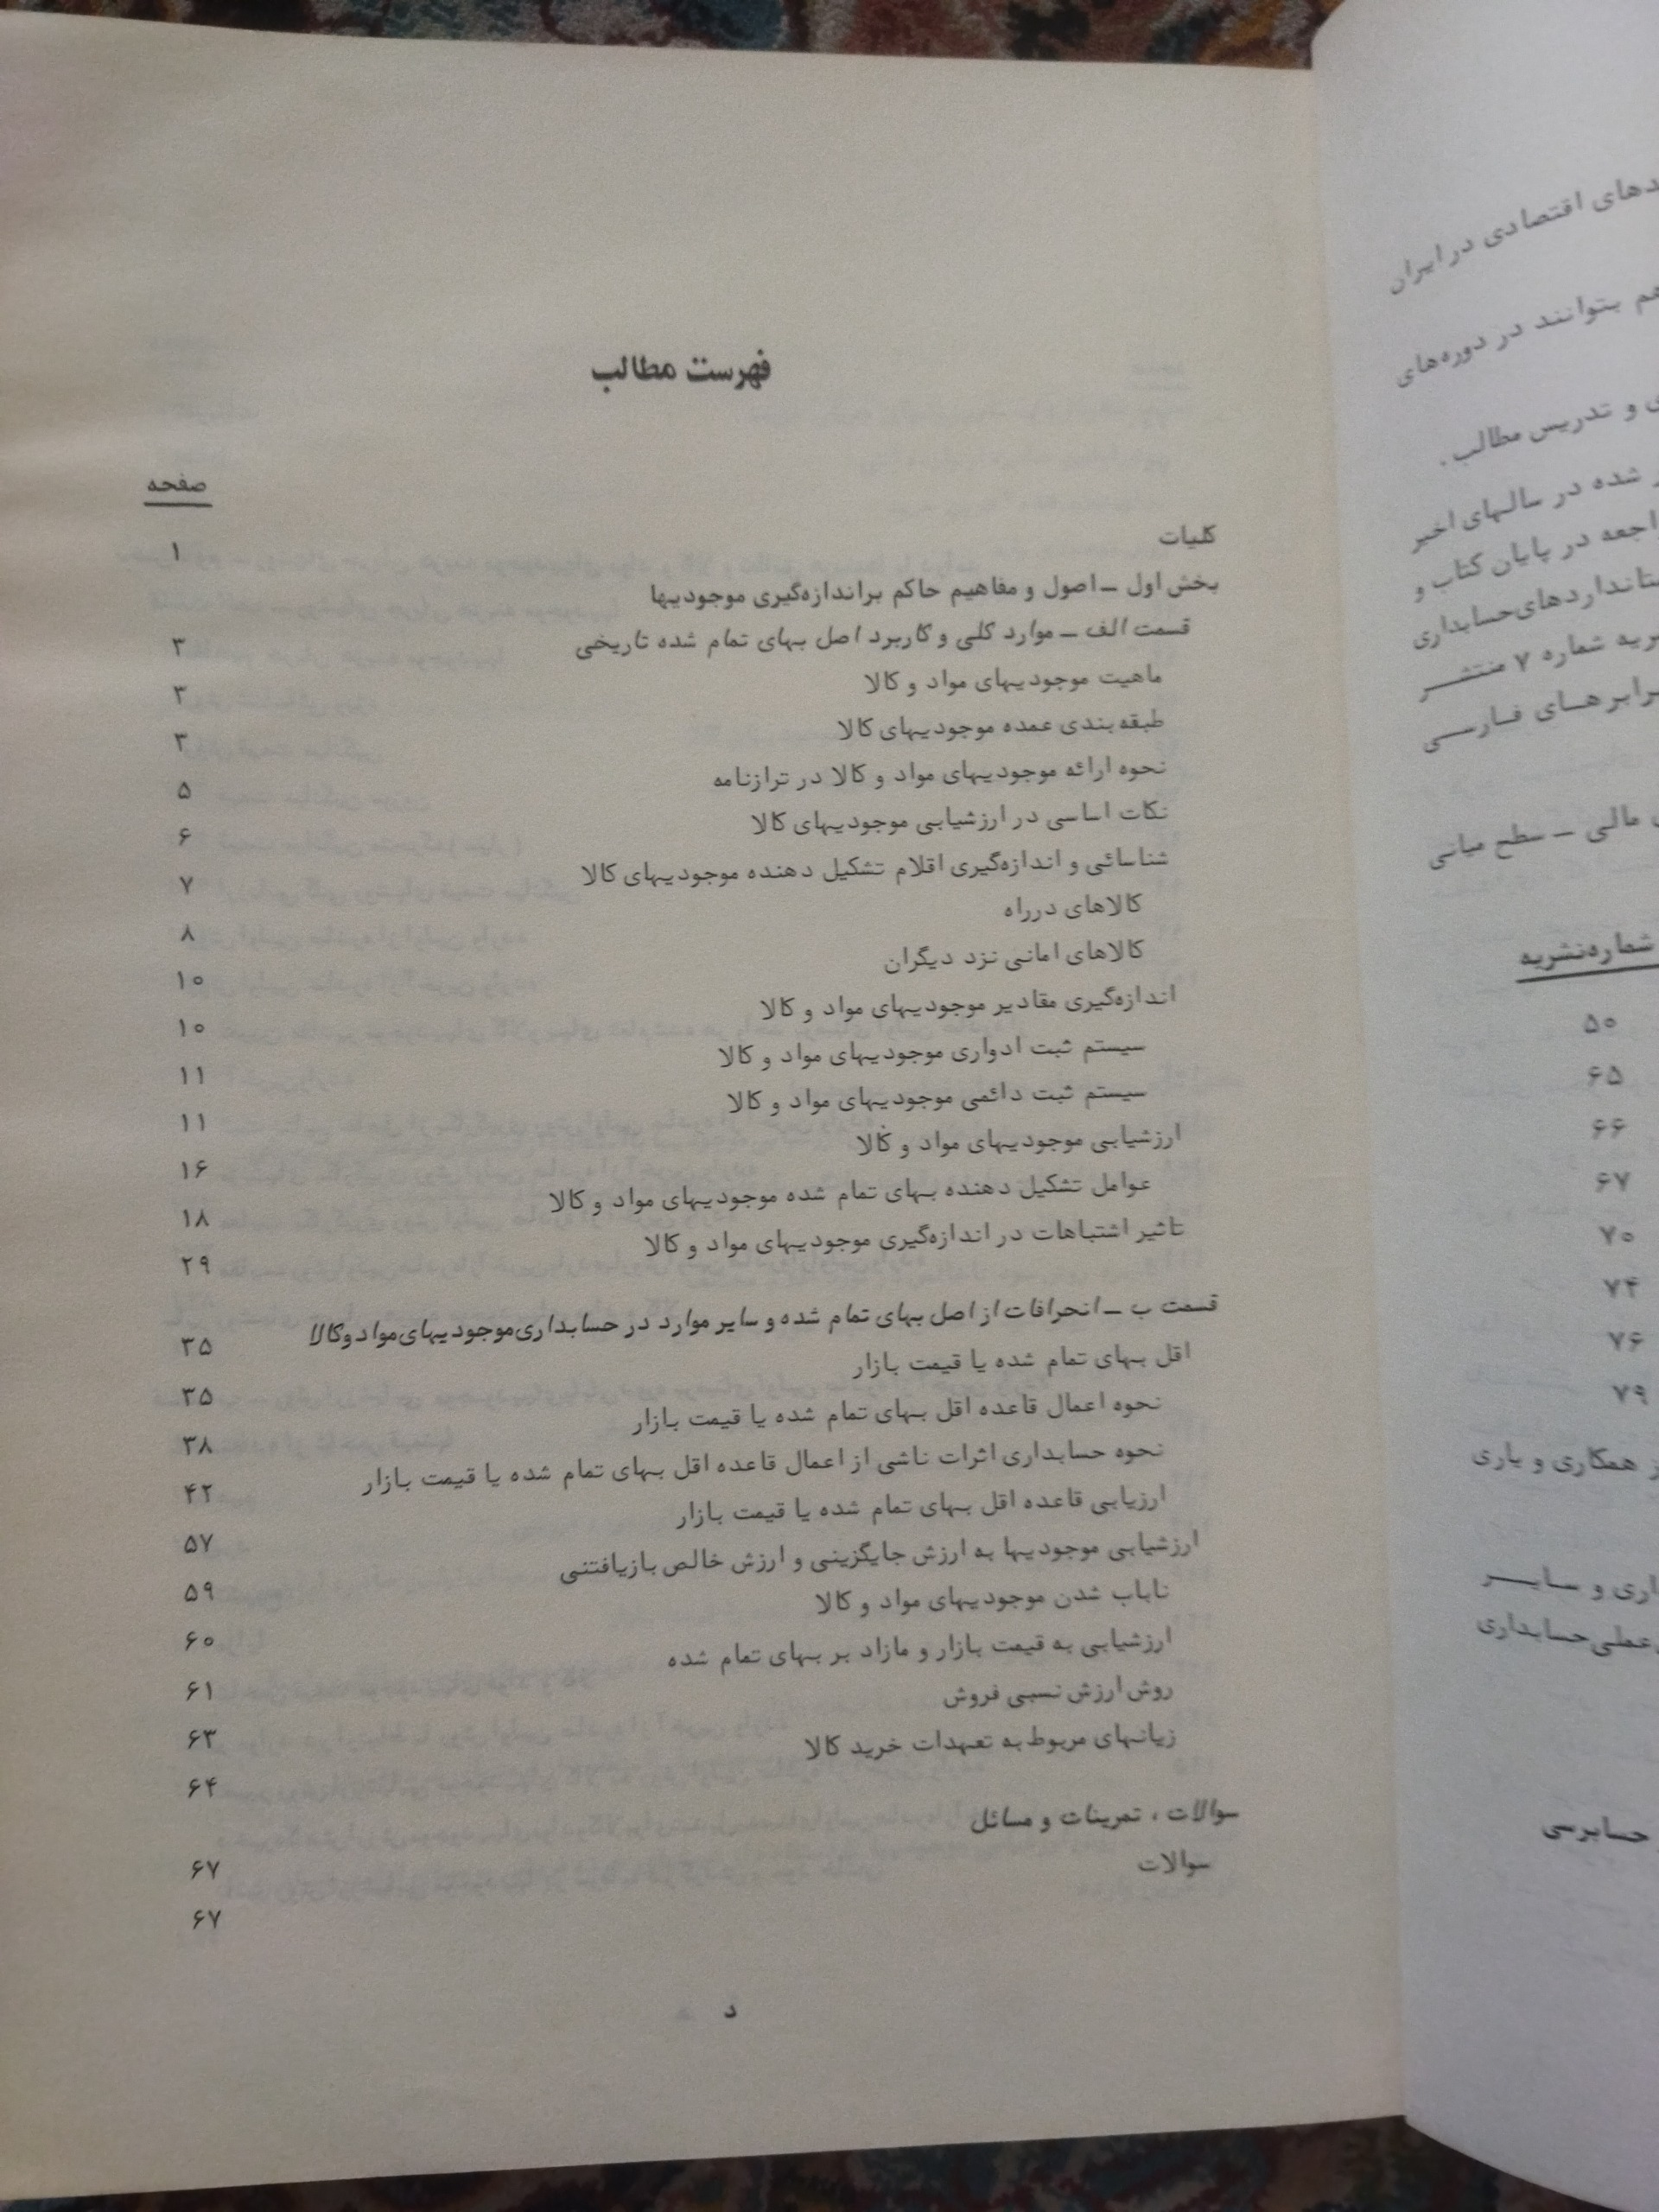 فهرست مطالب
صفحه
کلیات ۱
بخش اول ـ اصول و مفاهیم حاکم براندازه‌گیری موجودیها
قسمت الف ـ موارد کلی و کاربرد اصل بهای تمام شده تاریخی ۳
ماهیت موجودیهای مواد و کالا ۳
طبقه‌بندی عمده موجودیهای کالا ۳
نحوه ارائه موجودیهای مواد و کالا در ترازنامه ۵
نکات اساسی در ارزشیابی موجودیهای کالا ۶
شناسائی و اندازه‌گیری اقلام تشکیل دهنده موجودیهای کالا ۷
کالاهای درراه ۸
کالاهای امانی نزد دیگران ۱۰
اندازه‌گیری مقادیر موجودیهای مواد و کالا ۱۰
سیستم ثبت ادواری موجودیهای مواد و کالا ۱۱
سیستم ثبت دائمی موجودیهای مواد و کالا ۱۱
ارزشیابی موجودیهای مواد و کالا ۱۶
عوامل تشکیل دهنده بهای تمام شده موجودیهای مواد و کالا ۱۸
تاثیر اشتباهات در اندازه‌گیری موجودیهای مواد و کالا ۲۹
قسمت ب ـ انحرافات از اصل بهای تمام شده و سایر موارد در حسابداری موجودیهای مواد و کالا ۳۵
اقل بهای تمام شده یا قیمت بازار ۳۵
نحوه اعمال قاعده اقل بهای تمام شده یا قیمت بازار ۳۸
نحوه حسابداری اثرات ناشی از اعمال قاعده اقل بهای تمام شده یا قیمت بازار ۴۲
ارزیابی قاعده اقل بهای تمام شده یا قیمت بازار ۵۷
ارزشیابی موجودیها به ارزش جایگزینی و ارزش خالص بازیافتنی ۵۹
ناباب شدن موجودیهای مواد و کالا ۶۰
ارزشیابی به قیمت بازار و مازاد بر بهای تمام شده ۶۱
روش ارزش نسبی فروش ۶۳
زیانهای مربوط به تعهدات خرید کالا ۶۴
سوالات ، تمرینات و مسائل ۶۷
سوالات ۶۷
د
اقتصادی در ایران
بتوانند در دوره‌های
و تدریس مطالب .
شده در سالهای اخیر
در پایان کتاب و
حسابداری
شماره ۷ منتشر
فارسی
مالی ـ سطح میانی
شماره‌نشریه
۵۰
۶۵
۶۶
۶۷
۷۰
۷۴
۷۶
۷۹
همکاری و یاری
و سایر
حسابداری
حسابرسی